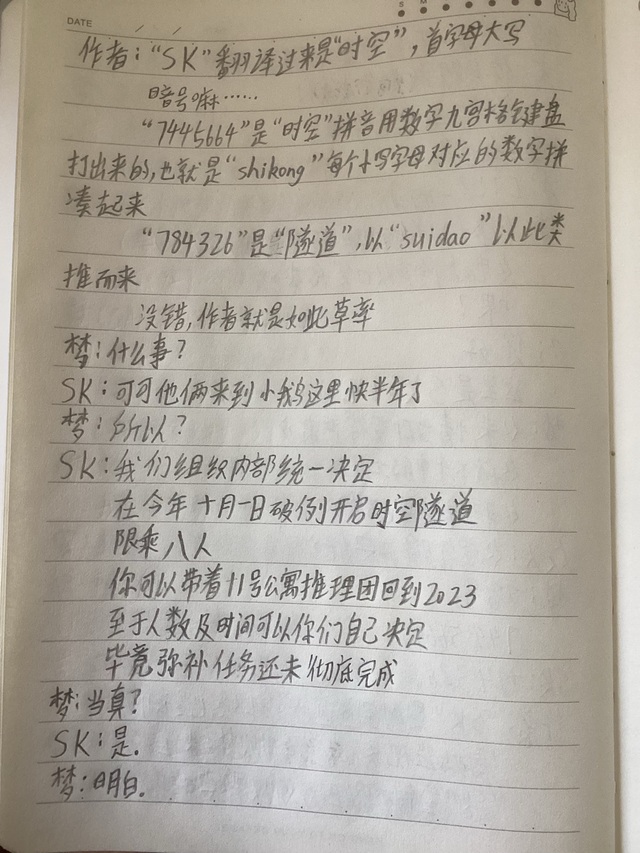 DATE
S M
作者：“SK”翻译过来是“时空”，首字母大写
暗号嘛……
“7445664”是“时空”拼音用数字九宫格键盘
打出来的，也就是“shikong”每个小写字母对应的数字拼
凑起来
“784326”是“隧道”，以“suidao”以此类
推而来
没错，作者就是如此草率
梦：什么事？
SK：可可他俩来到小鹅这里快半年了
梦：所以？
SK：我们组织内部统一决定
在今年十月一日破例开启时空隧道
限乘八人
你可以带着11号公寓推理团回到2023
至于人数及时间可以你们自己决定
毕竟弥补任务还未彻底完成
梦：当真？
SK：是.
梦：明白.